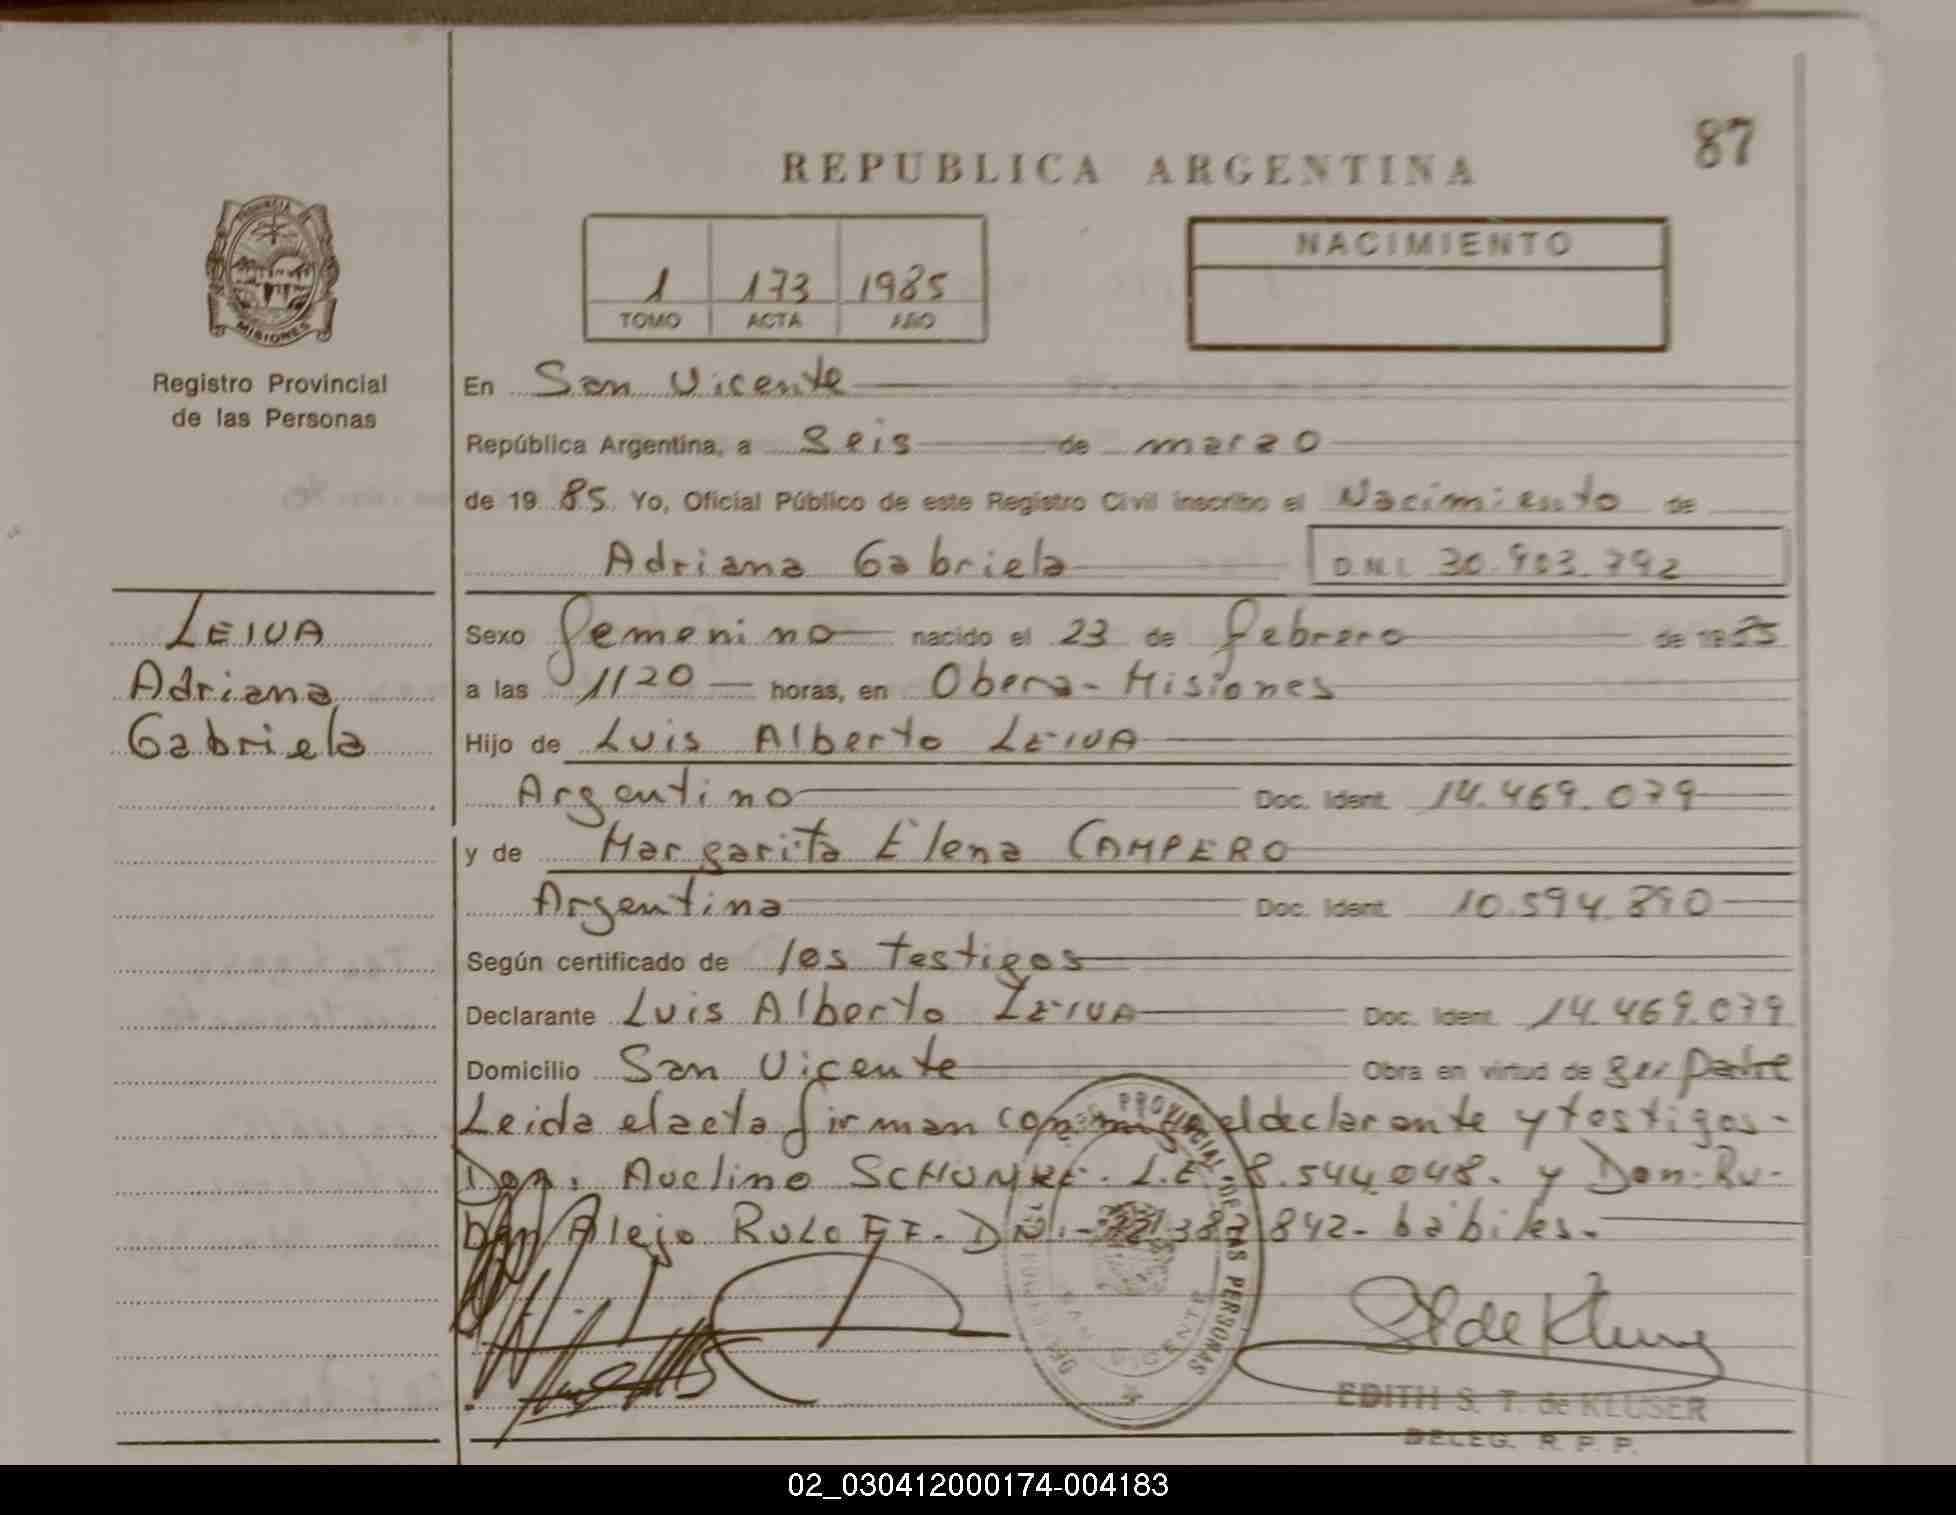 87
REPUBLICA ARGENTINA
PROVINCIA DE
MISIONES
1 173 1985
TOMO ACTA AÑO
NACIMIENTO
Registro Provincial
de las Personas
En San Vicente
República Argentina, a Seis de marzo
de 1985. Yo, Oficial Público de este Registro Civil inscribo el Nacimiento de
Adriana Gabriela D.N.I. 30.903.792
LEIVA
Adriana
Gabriela
Sexo femenino nacido el 23 de febrero de 1985
a las 1120 horas, en Obera - Misiones
Hijo de Luis Alberto LEIVA
Argentino Doc. Ident. 14.469.079
y de Margarita Elena CAMPERO
Argentina Doc. Ident. 10.594.890
Según certificado de los testigos
Declarante Luis Alberto LEIVA Doc. Ident. 14.469.079
Domicilio San Vicente Obra en virtud de ser padre
Leida el acta firman conmigo el declarante y testigos-
Don: Avelino SCHUNKE. L.E 8.544.048. y Don: Ru-
ben Alejo RULOFF. DNI. 382 842- habiles.-
PROVINCIAL DE LAS PERSONAS
SAN VICENTE
EDITH S. T. de KLUSER
DELEG. R. P. P.
02_030412000174-004183